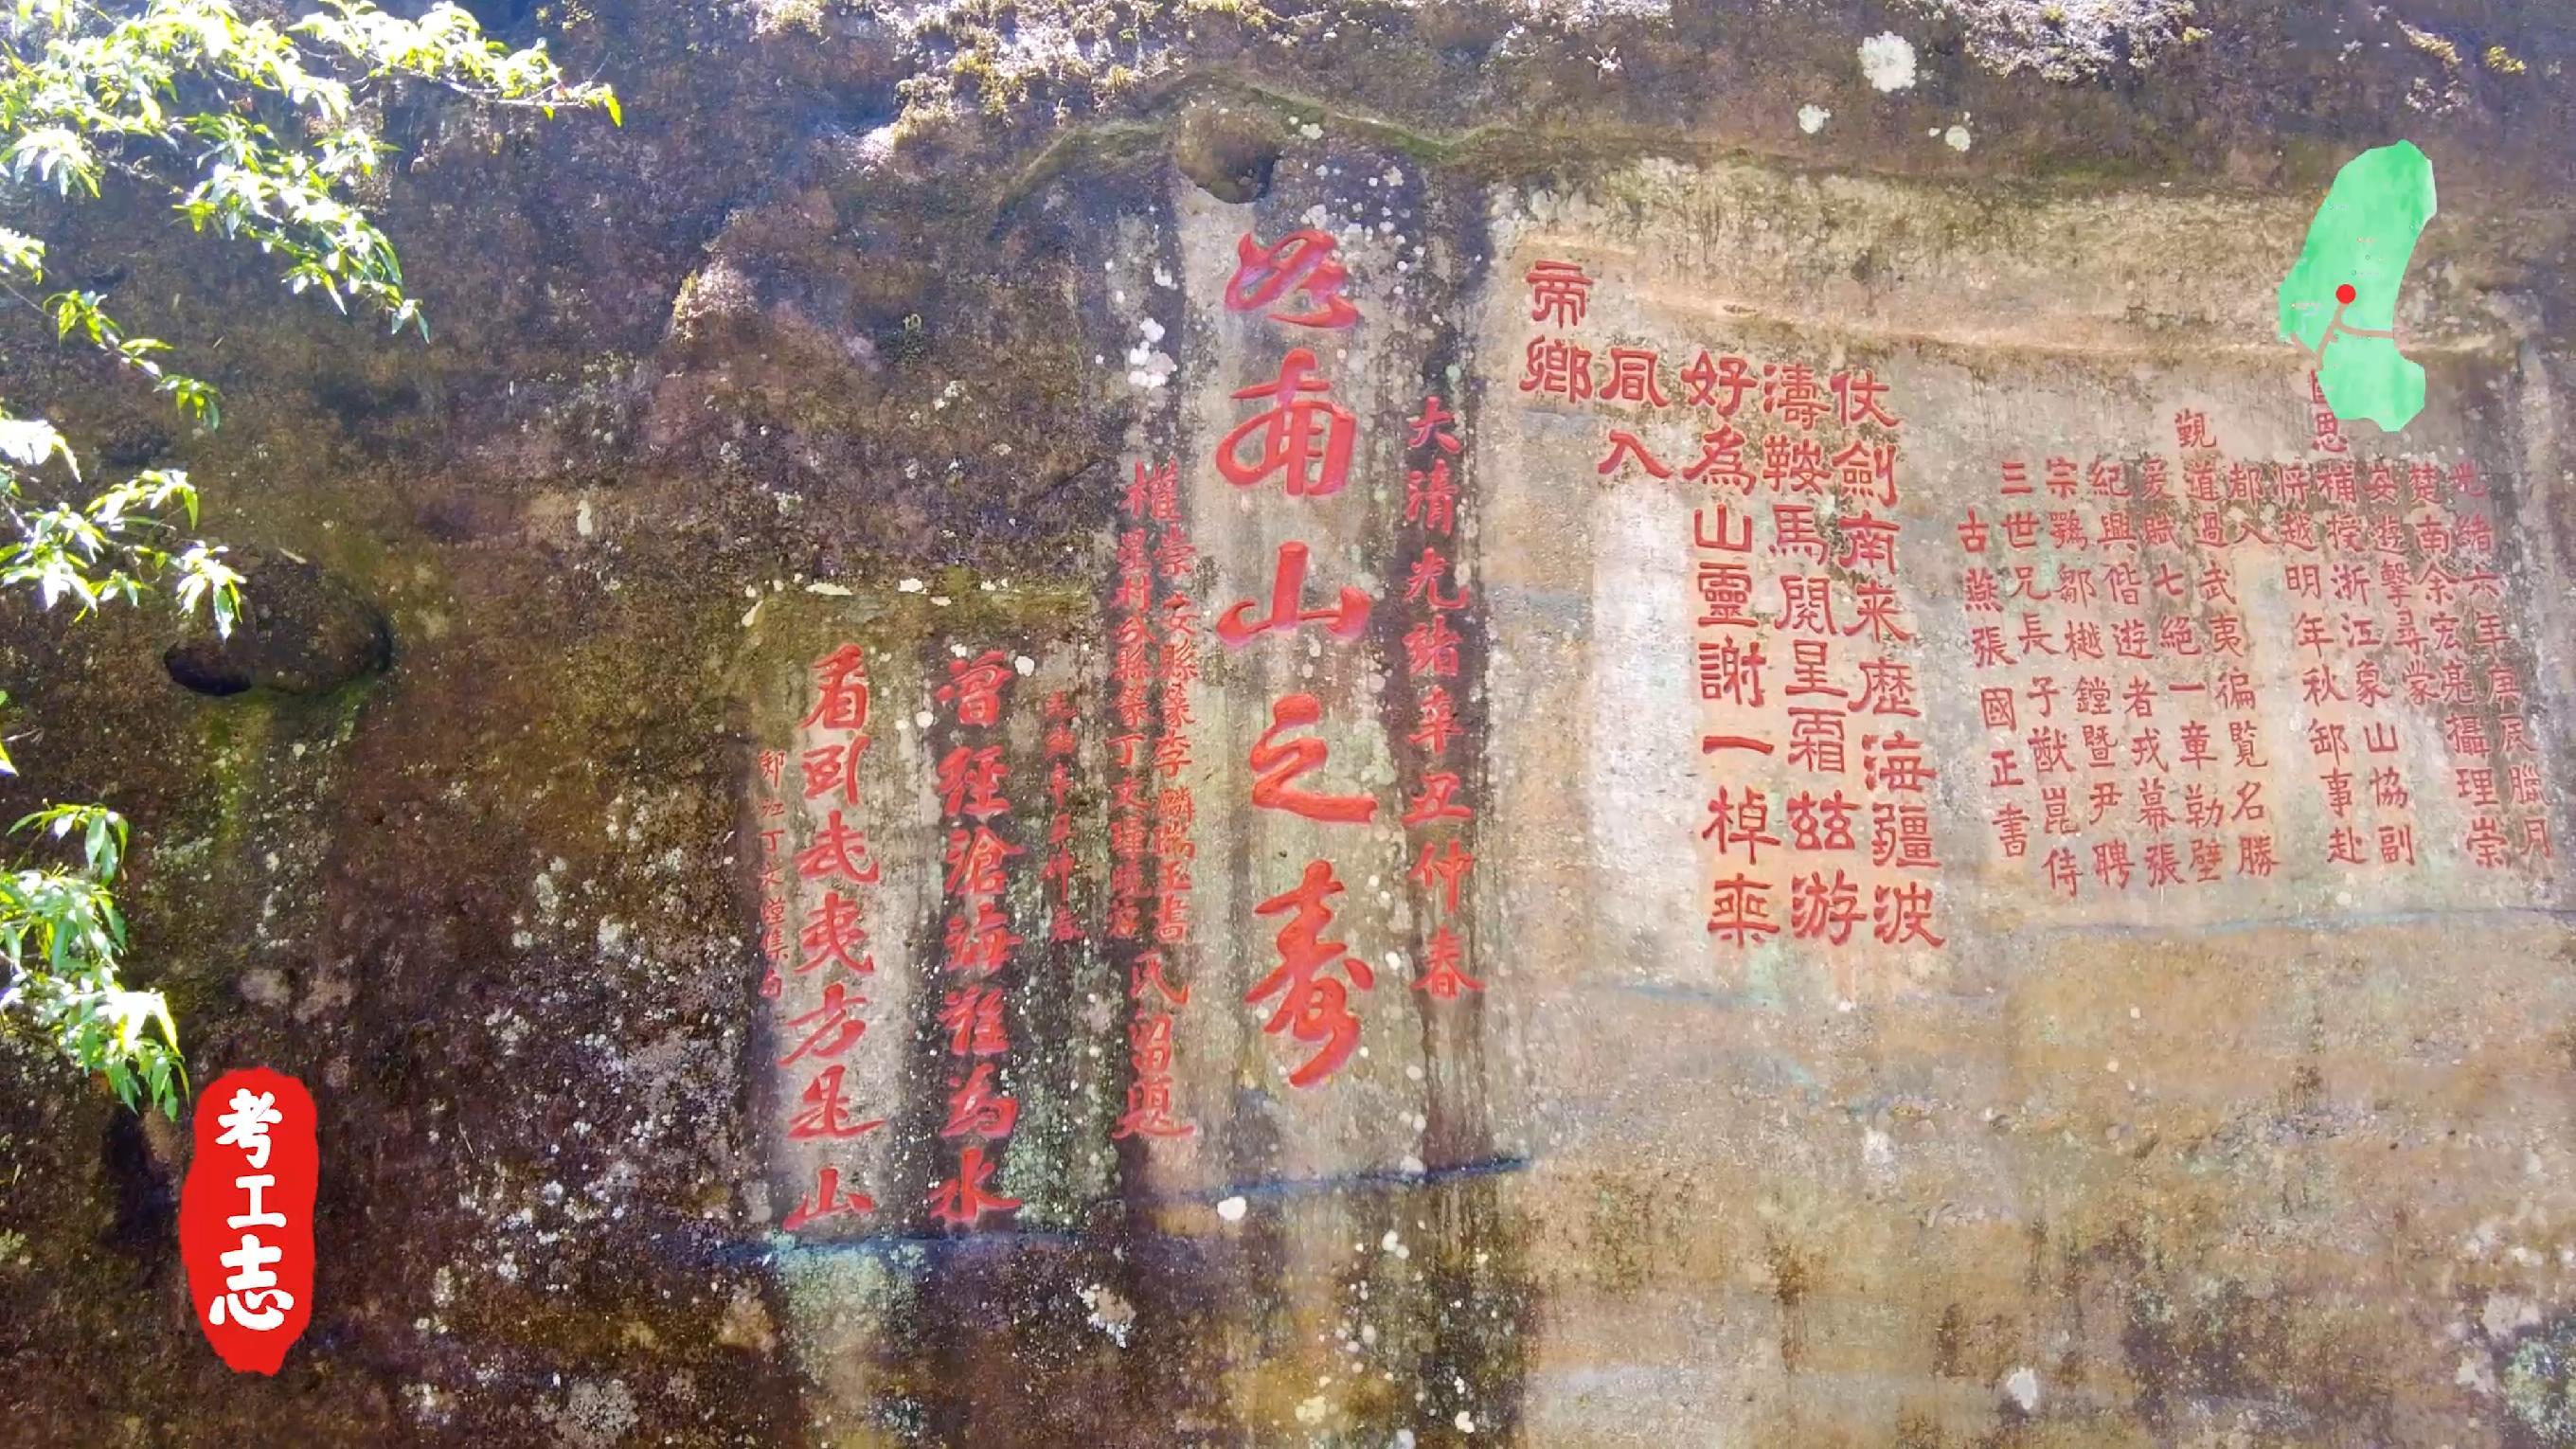 光緒六年庚辰臘月
楚南余宏亮攝理崇
安遊擊尋蒙
國恩補授浙江象山協副
將越明年秋卸事赴
都入
覲道過武夷徧覧名勝
爰賦七絕一章勒壁
紀興偕遊者戎幕張
宗鶚鄒樾鏜暨尹聘
三世兄長子猷崑侍
古燕張國正書
仗劍南来歷海疆波
濤鞍馬閱星霜茲游
好為山靈謝一棹乘
風入
帝鄉
大清光緒辛丑仲春
如南山之壽
崇安縣篆李麟瑞玉書
權星村分縣篆丁文
氏留題
辛丑仲春
曾經滄海難為水
看到武夷方是山
江丁文集句
考工志